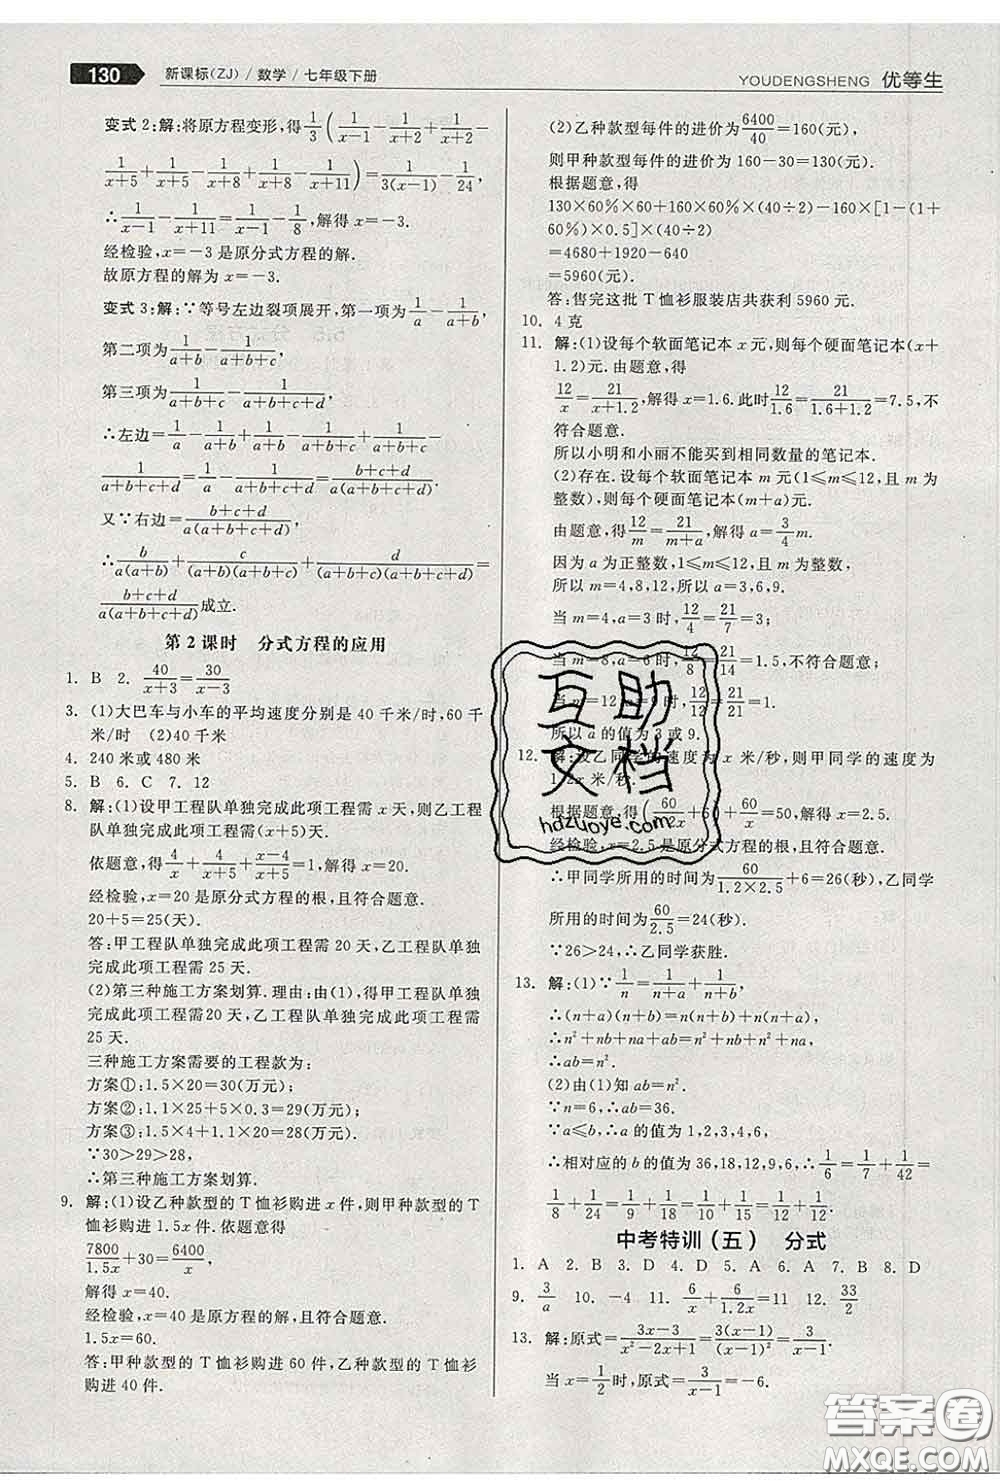 130 新课标(ZJ)/数学/七年级下册
YOUDENGSHENG 优等生
变式2:解:将原方程变形,得1/3(1/(x-1)-1/(x+2)+1/(x+2)-
1/(x+5)+1/(x+5)-1/(x+8)+1/(x+8)-1/(x+11))=1/(3(x-1))-1/24,
∴1/(x-1)-1/(x+11)=1/(x-1)-1/8,解得x=-3.
经检验,x=-3是原分式方程的解.
故原方程的解为x=-3.
变式3:解:∵等号左边裂项展开,第一项为1/a-1/(a+b),
第二项为1/(a+b)-1/(a+b+c),
第三项为1/(a+b+c)-1/(a+b+c+d),
∴左边=1/a-1/(a+b)+1/(a+b)-1/(a+b+c)+1/(a+b+c)-
1/(a+b+c+d)=1/a-1/(a+b+c+d)=(b+c+d)/(a(a+b+c+d)).
又∵右边=(b+c+d)/(a(a+b+c+d)),
∴b/(a(a+b))+c/((a+b)(a+b+c))+d/((a+b+c)(a+b+c+d))=
(b+c+d)/(a(a+b+c+d))成立.
第2课时 分式方程的应用
1. B 2. 40/(x+3)=30/(x-3)
3. (1)大巴车与小车的平均速度分别是40千米/时,60千
米/时 (2)40千米
4. 240米或480米
5. B 6. C 7. 12
8. 解:(1)设甲工程队单独完成此项工程需x天,则乙工程
队单独完成此项工程需(x+5)天.
依题意,得4/x+4/(x+5)+(x-4)/(x+5)=1,解得x=20.
经检验,x=20是原分式方程的根,且符合题意.
20+5=25(天).
答:甲工程队单独完成此项工程需20天,乙工程队单独
完成此项工程需25天.
(2)第三种施工方案划算.理由:由(1),得甲工程队单独
完成此项工程需20天,乙工程队单独完成此项工程需
25天.
三种施工方案需要的工程款为:
方案①:1.5×20=30(万元);
方案②:1.1×(20+5)... 
方案③:1.5×4+1.1×20=28(万元).
∵30>29>28,
∴第三种施工方案划算.
9. 解:(1)设乙种款型的T恤衫购进x件,则甲种款型的T
恤衫购进1.5x件.依题意得
7800/1.5x+30=6400/x,
解得x=40.
经检验,x=40是原方程的解,且符合题意.
1.5x=60.
答:甲种款型的T恤衫购进60件,乙种款型的T恤衫
购进40件.
(2)乙种款型每件的进价为6400/40=160(元),
则甲种款型每件的进价为160-30=130(元).
根据题意,得
130×60%×60+160×60%×(40÷2)-160×[1-(1+
60%)×0.5]×(40÷2)
=4680+1920-640
=5960(元).
答:售完这批T恤衫服装店共获利5960元.
10. 4克
11. 解:(1)设每个软面笔记本x元,则每个硬面笔记本(x+
1.2)元.由题意,得
12/x=21/(x+1.2),解得x=1.6.此时12/1.6=21/(1.6+1.2)=7.5,不
符合题意.
所以小明和小丽不能买到相同数量的笔记本.
(2)存在.设每个软面笔记本m元(1≤m≤12,且m为
整数),则每个硬面笔记本(m+a)元.
由题意,得12/m=21/(m+a),解得a=3/4 m.
因为a为正整数,1≤m≤12,且m为整数,
所以m=4,8,12,所以a=3,6,9.
当m=4,a=3时,12/4=21/7=3;
当m=8,a=6时,12/8=21/14=1.5,不符合题意;
当m=12,a=9时,12/12=21/21=1.
所以a的值为3或9.
12. 解:设乙同学的速度为x米/秒,则甲同学的速度为
1.2x米/秒.
根据题意,得(60/1.2x+6)+60/x=50,
经检验,x=2.5是原分式方程的根,且符合题意.
∴甲同学所用的时间为60/(1.2×2.5)+6=26(秒),乙同学
所用的时间为60/2.5=24(秒).
∵26>24,∴乙同学获胜.
13. 解:(1)∵1/n=1/(n+a)+1/(n+b),
∴(n+a)(n+b)=n(n+b)+n(n+a),
∴n²+nb+na+ab=n²+nb+n²+na,
∴ab=n².
(2)由(1)知ab=n².
∵n=6,∴ab=36.
∵a≤b,∴a的值为1,2,3,4,6,
∴相对应的b的值为36,18,12,9,6,∴1/6=1/7+1/42=
1/8+1/24=1/9+1/18=1/10+1/15=1/12+1/12.
中考特训(五) 分式
1. A 2. B 3. D 4. D 5. A 6. A 7. B 8. D
9. 3/a 10. -4 11. 6/x+6/1.2x=11 12. 33/2
13. 解:原式=(3x-3)/(x²-2x+1)=3(x-1)/(x-1)²=3/(x-1).
当x=1/2时,原式=3/(x-1)=-6.
互助
文档
hdzuoye.com
答案圈
MXQE.COM